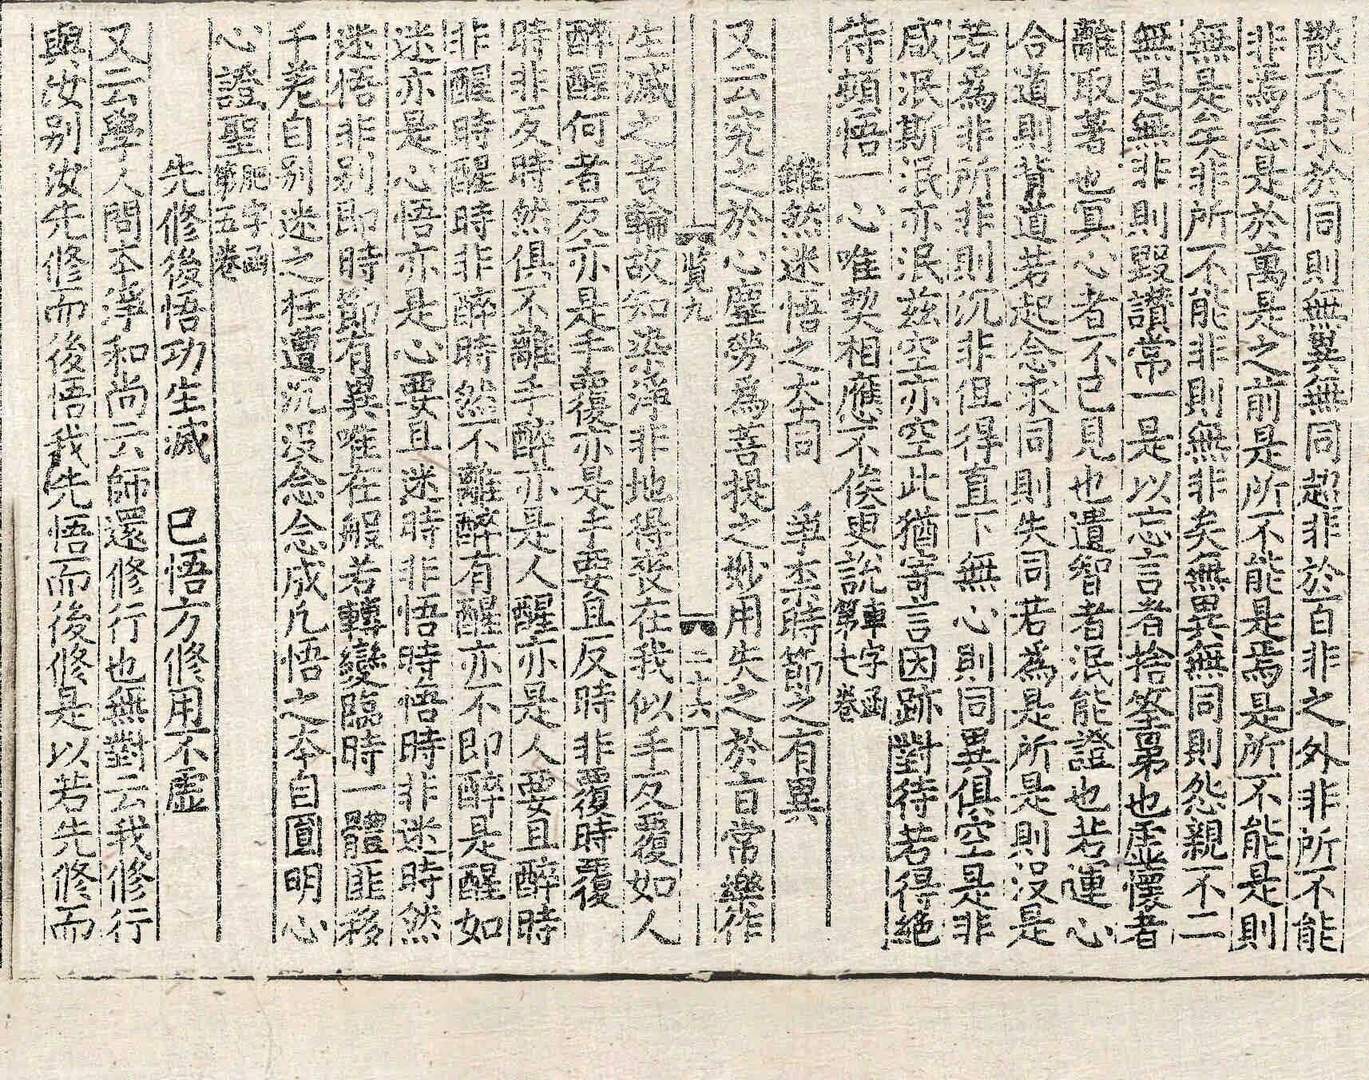 散不求於同則無異無同超非於百非之外非所不能
非焉忘是於萬是之前是所不能是焉是所不能是則
無是矣非所不能非則無非矣無異無同則怨親不二
無是無非則毀讃常一是以忘言者捨筌罤也虛懷者
離取著也冥心者不己見也遺智者泯能證也若運心
合道則背道若起念求同則失同若為是所是則沒是
若為非所非則沉非但得直下無心則同異俱空是非
咸泯斯泯亦泯兹空亦空此猶寄言因跡對待若得絶
待頓悟一心唯契相應不俟更説車字函第七卷
雖然迷悟之大同　爭柰時節之有異
又云究之於心塵勞為菩提之妙用失之於旨常樂作
覧九　二十六
生滅之苦輪故知染淨非地得喪在我似手反覆如人
醉醒何者反亦是手覆亦是手要且反時非覆時覆
時非反時然俱不離手醉亦是人醒亦是人要且醉時
非醒時醒時非醉時然不離醉有醒亦不即醉是醒如
迷亦是心悟亦是心要且迷時非悟時悟時非迷時然
迷悟非別即時節有異唯在般若轉變臨時一體匪移
千差自别迷之枉遭沉没念念成凡悟之本自圓明心
心證聖肥字函第五卷
先修後悟功生滅　已悟方修用不虛
又云學人問本淨和尚云師還修行也無對云我修行
與汝别汝先修而後悟我先悟而後修是以若先修而